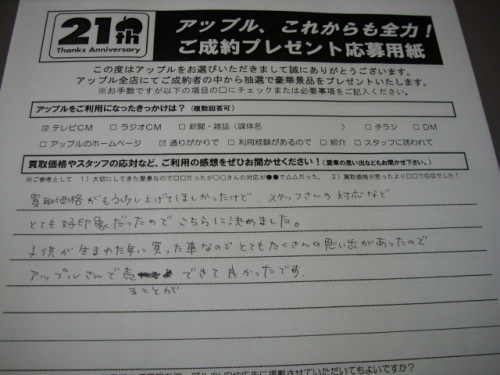 21th
Thanks Anniversary
アップル、これからも全力!
ご成約プレゼント応募用紙
この度はアップルをお選びいただきまして誠にありがとうございます。
アップル全店にてご成約者の中から抽選で豪華景品をプレゼントいたします。
※お手数ですが以下の項目の□にチェックまたは必要事項をご記入ください。
アップルをご利用になったきっかけは?(複数回答可)
☑テレビCM □ラジオCM □新聞・雑誌(媒体名 ) □チラシ □DM
□アップルのホームページ ☑通りがかりで □利用経験があるので □紹介 □スタッフに誘われて
買取価格やスタッフの応対など、ご利用の感想をぜひお聞かせください!(愛車の思い出などもお聞かせ下さい。)
※ご参考として 1)大切にしてきた愛車なので□□だったが○○さんの対応が●●でムムだった。 2)買取価格が思ったより□□で
買取価格がもう少し上げてほしかったけど、スタッフさんの対応など
とても好印象だったのでこちらに決めました。
子供が生まれた年に買った車なのでとてもたくさんの思い出があったので
アップルさんで売ることができて良かったです。
に掲載させていただいてもよいですか?